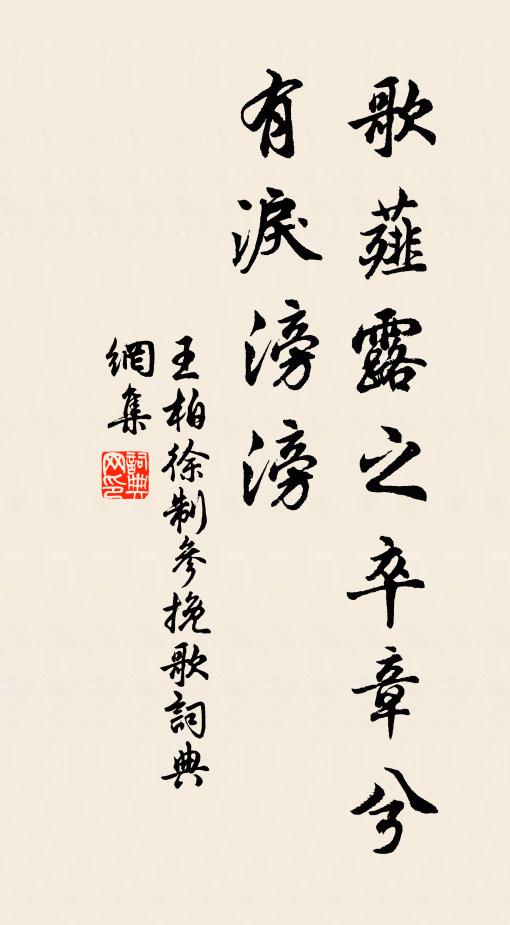 歌薤露之卒章兮
有淚滂滂
王柏徐制參挽歌詞典
網集
詞典
网印